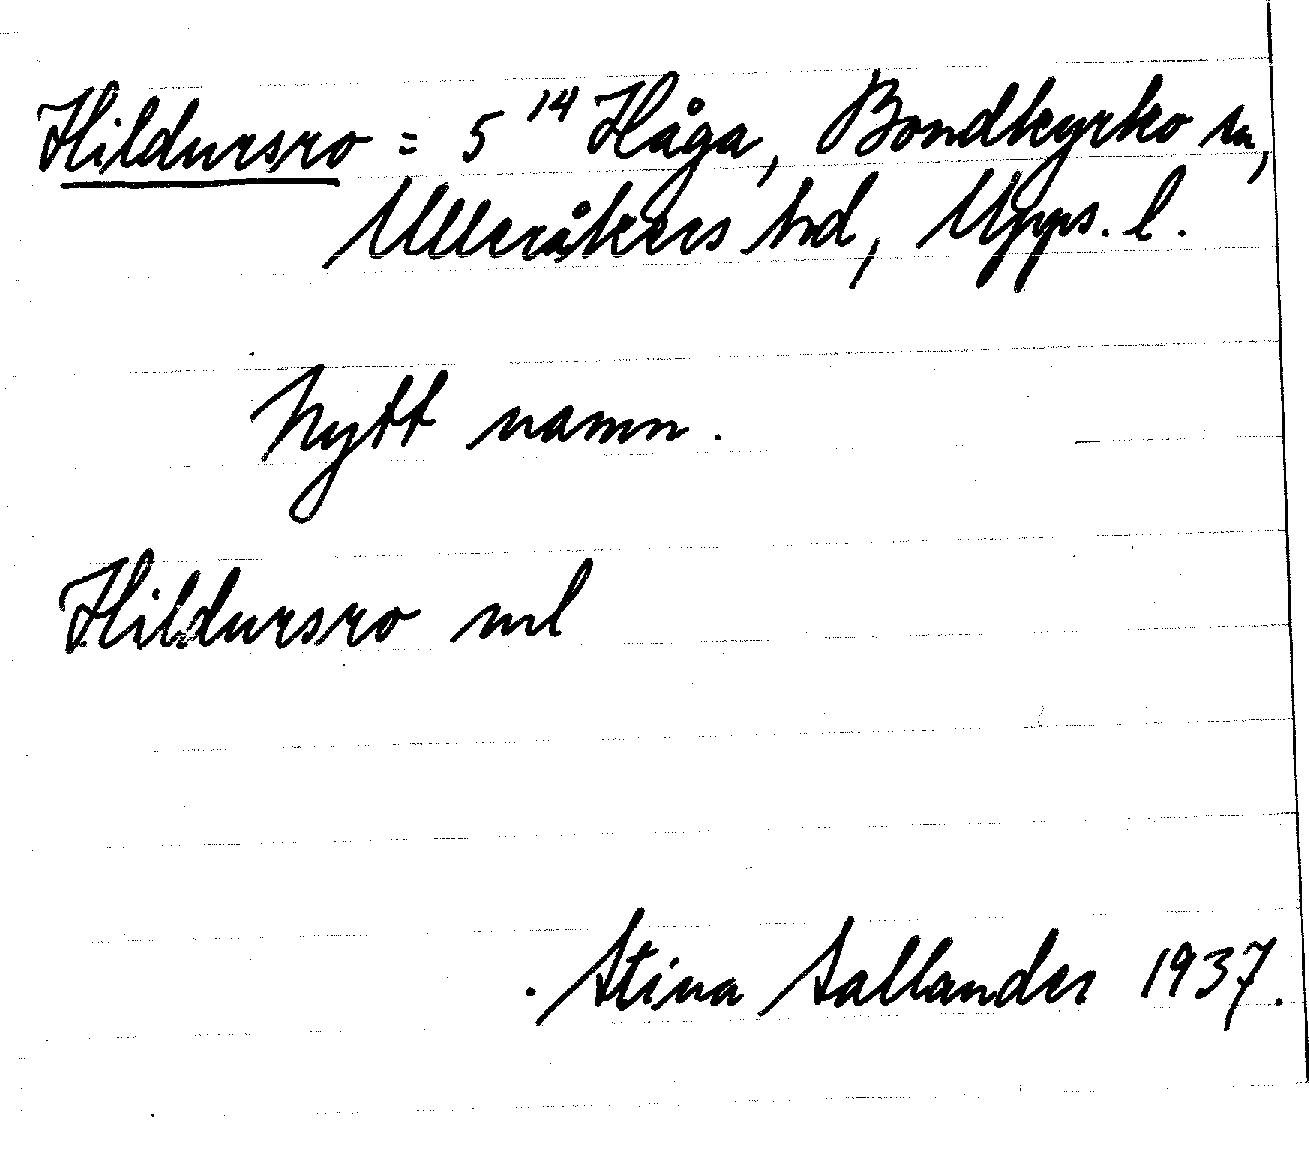 Hildursro = 5 14 Håga, Bondkyrko sn,
Ulleråkers hd, Upps. l.
Nytt namn.
Hildursro ml
Stina Sallander 1937.